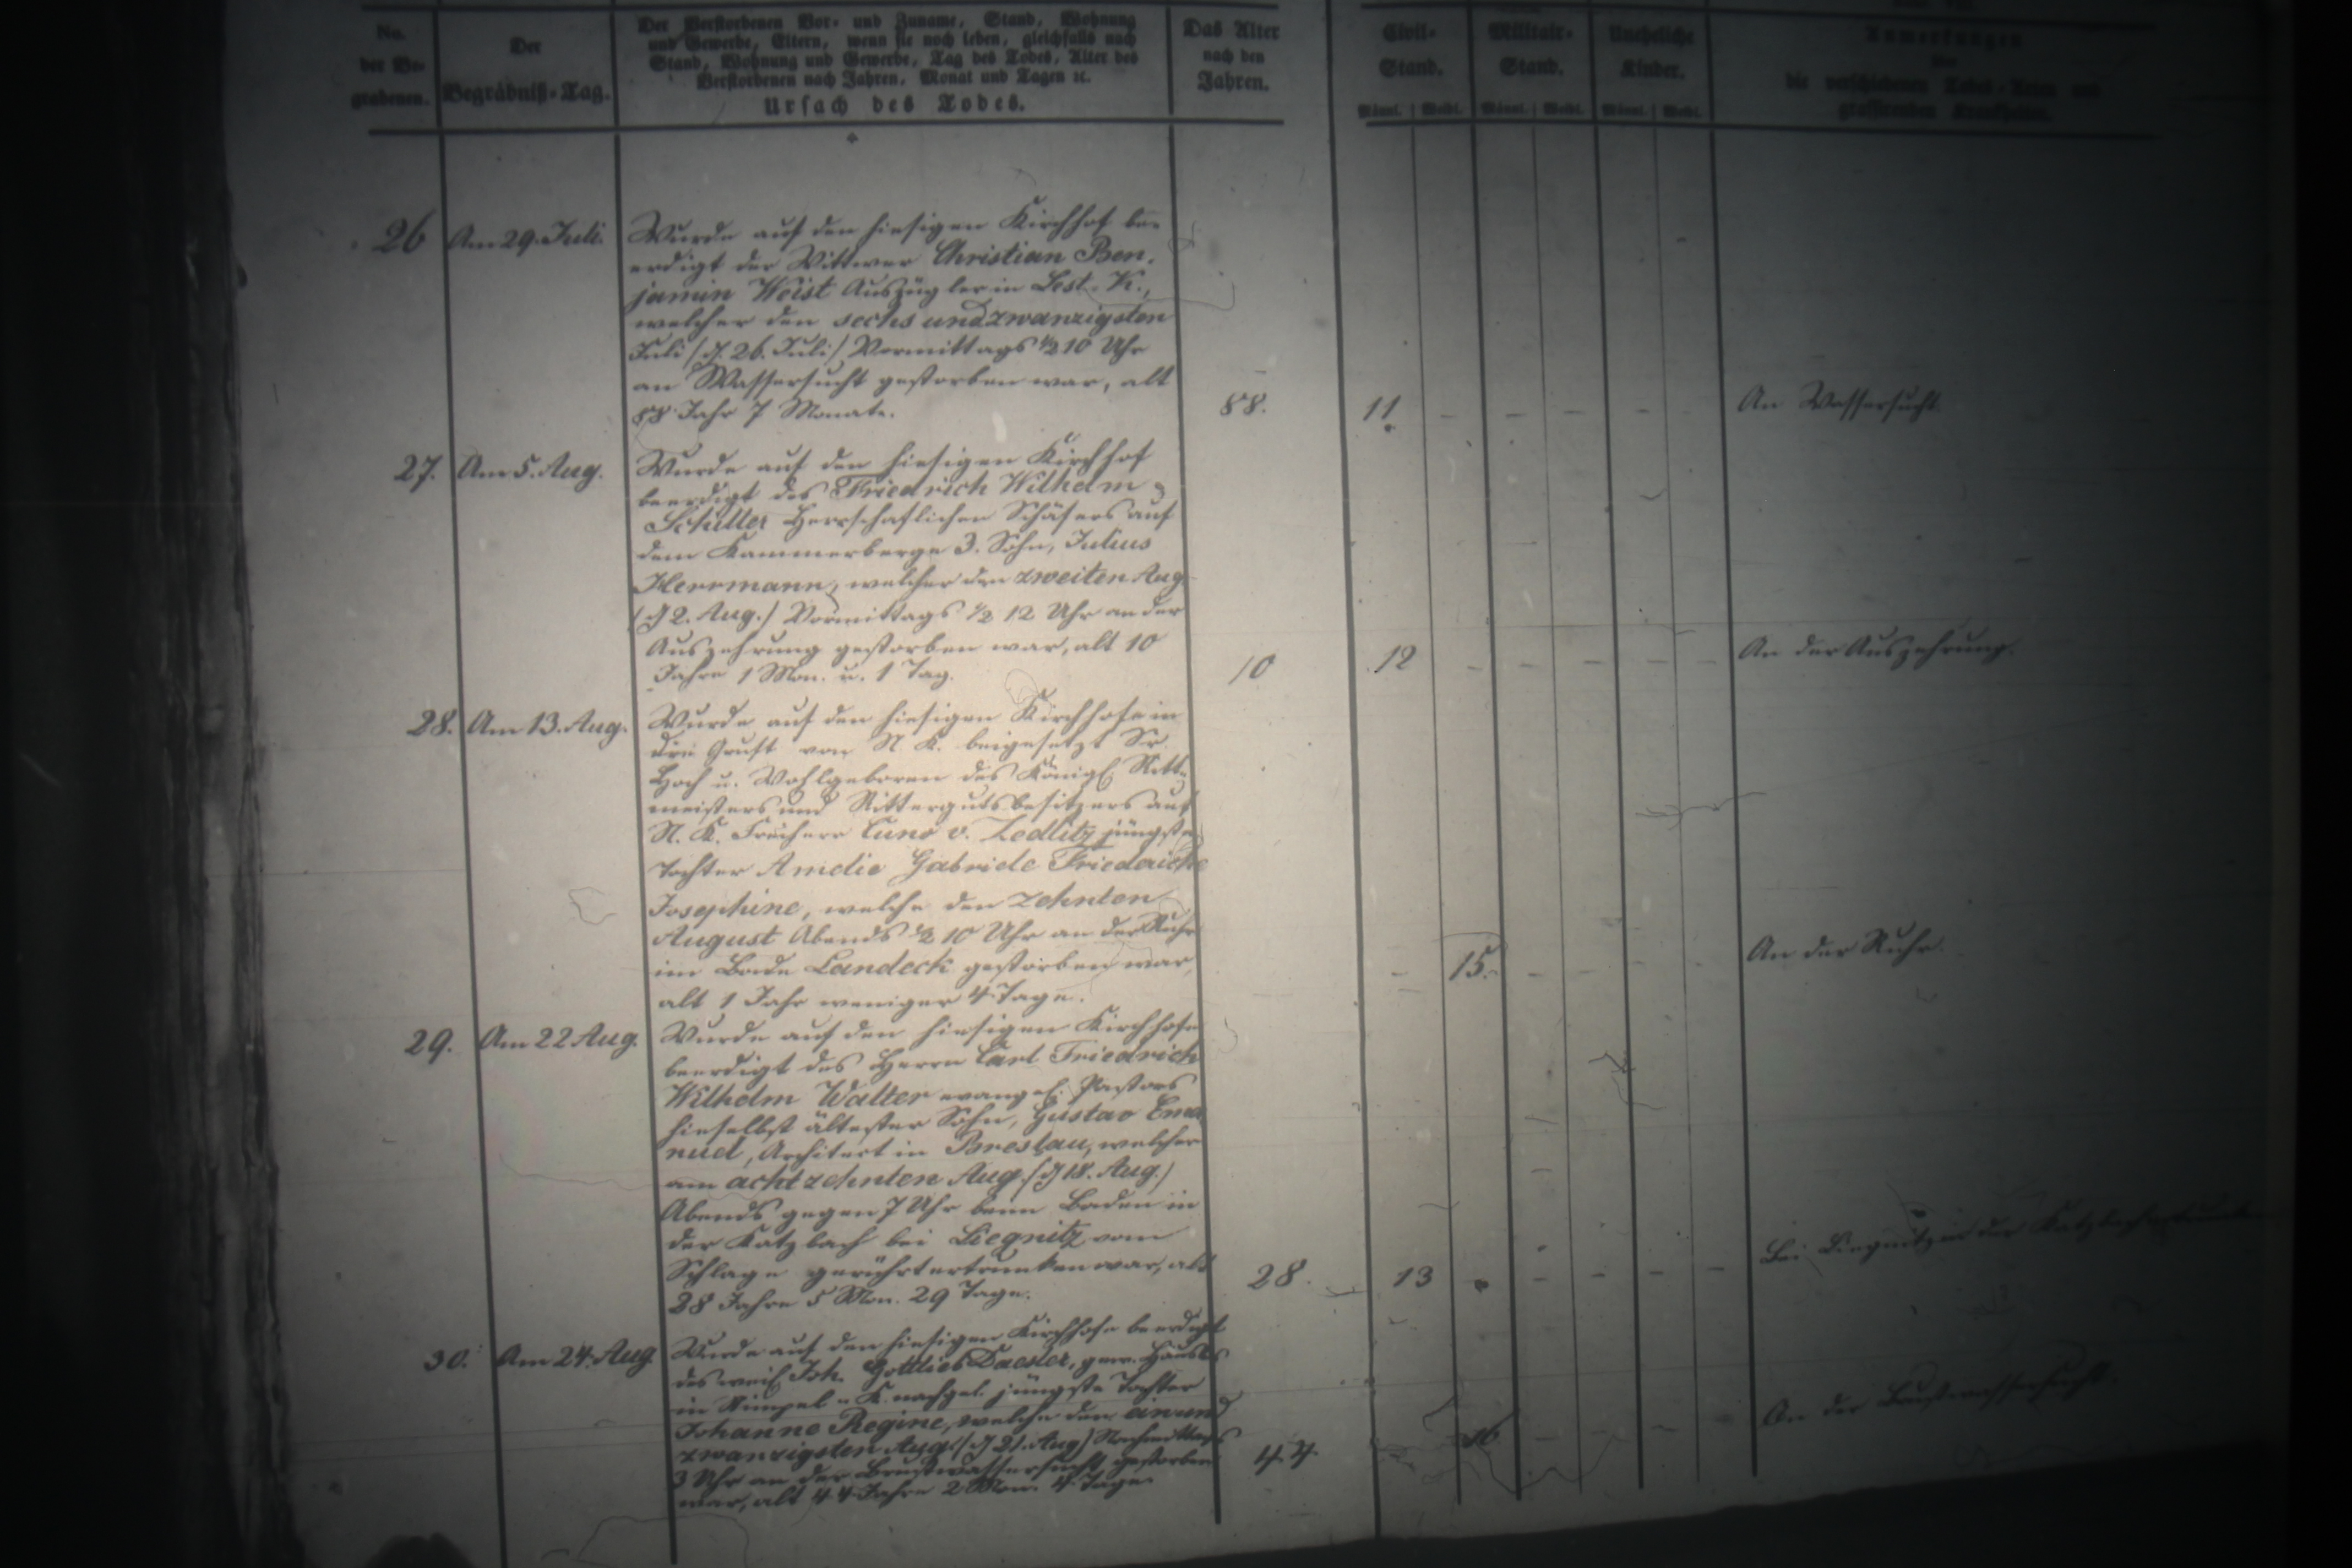 No. der Be- grabenen.
Der Begräbniß-Tag.
Der Verstorbenen Vor- und Zuname, Stand, Wohnung
und Gewerbe, Eltern, wenn sie noch leben, gleichfalls nach
Stand, Wohnung und Gewerbe, Tag des Todes, Alter des
Verstorbenen nach Jahren, Monat und Tagen ꝛc.
Ursach des Todes.
Das Alter nach den Jahren.
Civil- Stand.
Militair- Stand.
Uneheliche Kinder.
Männl. Weibl. Männl. Weibl. Männl. Weibl.
Anmerkungen
die verschiedenen Todes-Arten und
grassirenden Krankheiten.
26 Am 29. Juli.
Wurde auf den hiesigen Kirchhof be-
erdigt der Wittwer Christian Ben-
jamin Weist Auszügler in K.,
welcher den sechsundzwanzigsten
Juli (d. 26. Juli) Vormittags ½ 10 Uhr
an Wassersucht gestorben war, alt
88 Jahr 7 Monate.
88. 11 - - - - -
An Wassersucht.
27. Am 5. Aug.
Wurde auf den hiesigen Kirchhof
beerdigt des Friedrich Wilhelm
Schiller Herrschaftlichen Schäfers auf
dem Kammerberge 3. Sohn, Julius
Herrmann, welcher den zweiten Aug
(d 2. Aug.) Vormittags ½ 12 Uhr an der
Auszehrung gestorben war, alt 10
Jahre 1 Mon. u. 1 Tag.
10 12 - - - - -
An der Auszehrung.
28. Am 13. Aug.
Wurde auf den hiesigen Kirchhofe in
die Gruft von N. K. beigesetzt Sr.
Hoch u. Wohlgeboren des Königl. Ritt-
meisters und Rittergutsbesitzers auf
N. K. Freiherr Cuno v. Zedlitz jüngste
Tochter Amelie Gabriele Friedericke
Josephine, welche den zehnten
August Abends ½ 10 Uhr an der Ruhr
im Bade Landeck gestorben war,
alt 1 Jahr weniger 4 Tage.
- 15. - - - -
An der Ruhr.
29. Am 22 Aug.
Wurde auf den hiesigen Kirchhofe
beerdigt des Herrn Carl Friedrich
Wilhelm Walter evangel. Pastors
hieselbst ältester Sohn, Gustav
Architect in Breslau, welcher
am achtzehnten Aug (d 18. Aug.)
Abends gegen 7 Uhr beim Baden in
der Katzbach bei Liegnitz vom
Schlage gerührt ertrunken war, alt
28 Jahre 5 Mon. 29 Tage.
28. 13 - - - -
Bei Liegnitz in der Katzbach ertrunken
30. Am 24. Aug
Wurde auf den hiesigen Kirchhofe beerdigt
des weil. Joh. Gottlieb gew.
in K. nachgel. jüngste Tochter
Johanne Regine, welche den einund
zwanzigsten Aug (d 21. Aug) Nachmittags
3 Uhr an der Brustwassersucht gestorben
war, alt 44 Jahre 2 Mon. 4 Tage.
44. 16 - - - -
An der Brustwassersucht.